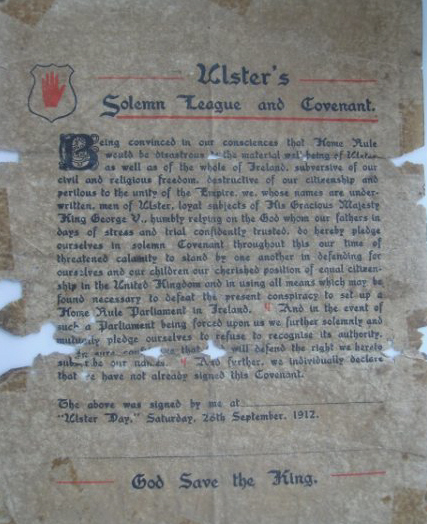 Ulster's
Solemn League and Covenant.
Being convinced in our consciences that Home Rule
would be disastrous the material well-being of Ulster
as well as of the whole of Ireland, subversive of our
civil and religious freedom, destructive of our citizenship and
perilous to the unity of the Empire, we, whose names are under-
written, men of Ulster, loyal subjects of His Gracious Majesty
King George V., humbly relying on the God whom our fathers in
days of stress and trial confidently trusted, do hereby pledge
ourselves in solemn Covenant throughout this our time of
threatened calamity to stand by one another in defending for
ourselves and our children our cherished position of equal citizen-
ship in the United Kingdom and in using all means which may be
found necessary to defeat the present conspiracy to set up a
Home Rule Parliament in Ireland. ¶ And in the event of
such a Parliament being forced upon us we further solemnly and
mutually pledge ourselves to refuse to recognise its authority.
In sure that will defend the right we hereby
subscribe our names. ¶ And further, we individually declare
that we have not already signed this Covenant.
The above was signed by me at
"Ulster Day," Saturday, 28th September, 1912.
God Save the King.